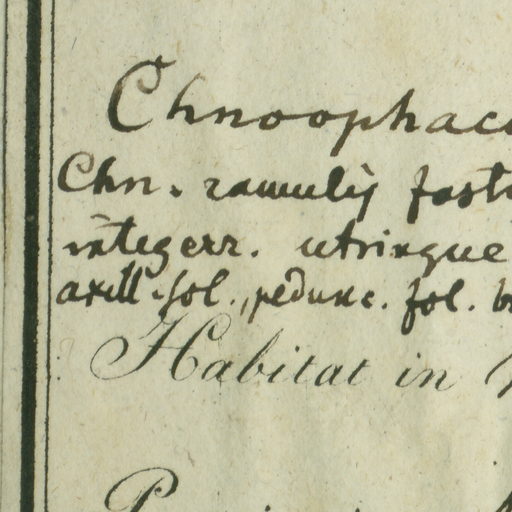 Chnoophaca
Chn. ramulis fasti
integerr. utrinque
axill. sol., pedunc. fol. b
Habitat in